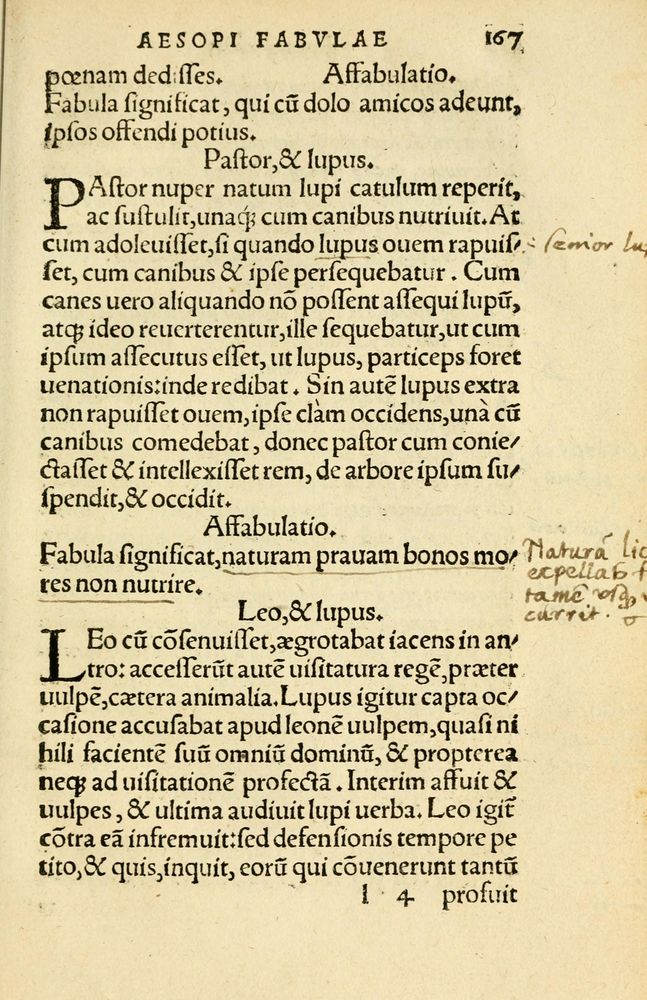 AESOPI FABVLAE 167
pœnam dedisses. Affabulatio.
Fabula significat, qui cũ dolo amicos adeunt,
ipsos offendi potius.
Pastor, & lupus.
PAstor nuper natum lupi catulum reperit,
ac sustulit, unaq; cum canibus nutriuit. At
cum adoleuisset, si quando lupus ouem rapuis/
set, cum canibus & ipse persequebatur. Cum
canes uero aliquando nõ possent assequi lupũ,
atq; ideo reuerterentur, ille sequebatur, ut cum
ipsum assecutus esset, ut lupus, particeps foret
uenationis: inde redibat. Sin autẽ lupus extra
non rapuisset ouem, ipse clàm occidens, unà cũ
canibus comedebat, donec pastor cum conie/
ctasset & intellexisset rem, de arbore ipsum su/
spendit, & occidit.
Affabulatio.
Fabula significat, naturam prauam bonos mo/
res non nutrire.
Leo, & lupus.
LEo cũ cõsenuisset, ægrotabat iacens in an/
tro: accesserũt autẽ uisitatura regẽ, præter
uulpẽ, cætera animalia. Lupus igitur capta oc/
casione accusabat apud leonẽ uulpem, quasi ni
hili facientẽ suũ omniũ dominũ, & propterea
neq; ad uisitationẽ profectã. Interim affuit &
uulpes, & ultima audiuit lupi uerba. Leo igit̃
cõtra eã infremuit: sed defensionis tempore pe
tito, & quis, inquit, eorũ qui cõuenerunt tantũ
l 4 profuit
senior lu
Naturã lic
expellas f
tamẽ usq
currit.